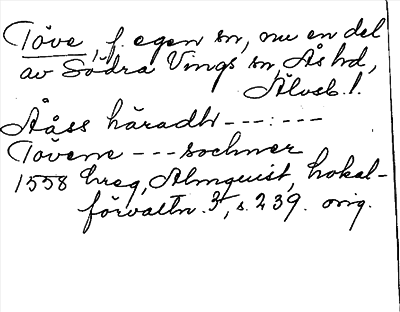 Töve, f. egen sn, nu en del
av Södra Vings sn, Ås hd,
Älvsb. l.
Ååss häradh ---:---
Tövene --- sochner
1558 hreg, Almquist, Lokal-
förvaltn. 3, s. 239. orig.